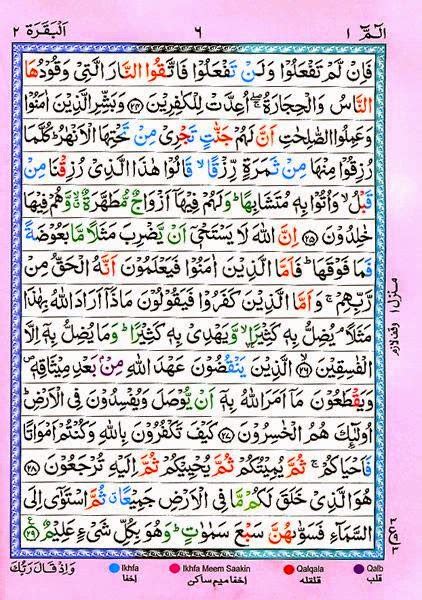 الٓمّٓ ١ ٦ اَلْبَقَرَة ٢
فَاِنْ لَّمْ تَفْعَلُوْا وَلَنْ تَفْعَلُوْا فَاتَّقُوا النَّارَ الَّتِىْ وَقُوْدُهَا
النَّاسُ وَالْحِجَارَةُ ۖۚ اُعِدَّتْ لِلْكٰفِرِيْنَ ﴿۲۴﴾ وَبَشِّرِ الَّذِيْنَ اٰمَنُوْا
وَعَمِلُوا الصّٰلِحٰتِ اَنَّ لَهُمْ جَنّٰتٍ تَجْرِىْ مِنْ تَحْتِهَا الْاَنْهٰرُ ؕ كُلَّمَا
رُزِقُوْا مِنْهَا مِنْ ثَمَرَةٍ رِّزْقًا ۙ قَالُوْا هٰذَا الَّذِىْ رُزِقْنَا مِنْ
قَبْلُ ۙ وَاُتُوْا بِهٖ مُتَشَابِهًا ؕ وَلَهُمْ فِيْهَآ اَزْوَاجٌ مُّطَهَّرَةٌ ۙ وَّهُمْ فِيْهَا
خٰلِدُوْنَ ﴿۲۵﴾ اِنَّ اللّٰهَ لَا يَسْتَحْىٖٓ اَنْ يَّضْرِبَ مَثَلًا مَّا بَعُوْضَةً
فَمَا فَوْقَهَا ؕ فَاَمَّا الَّذِيْنَ اٰمَنُوْا فَيَعْلَمُوْنَ اَنَّهُ الْحَقُّ مِنْ
رَّبِّهِمْ ۚ وَاَمَّا الَّذِيْنَ كَفَرُوْا فَيَقُوْلُوْنَ مَاذَآ اَرَادَ اللّٰهُ بِهٰذَا
مَثَلًا ۘ يُضِلُّ بِهٖ كَثِيْرًا ۙ وَّيَهْدِىْ بِهٖ كَثِيْرًا ؕ وَمَا يُضِلُّ بِهٖٓ اِلَّا
الْفٰسِقِيْنَ ﴿۲۶﴾ الَّذِيْنَ يَنْقُضُوْنَ عَهْدَ اللّٰهِ مِنْۢ بَعْدِ مِيْثَاقِهٖ ۪
وَيَقْطَعُوْنَ مَآ اَمَرَ اللّٰهُ بِهٖٓ اَنْ يُّوْصَلَ وَيُفْسِدُوْنَ فِى الْاَرْضِ ؕ
اُولٰٓئِكَ هُمُ الْخٰسِرُوْنَ ﴿۲۷﴾ كَيْفَ تَكْفُرُوْنَ بِاللّٰهِ وَكُنْتُمْ اَمْوَاتًا
فَاَحْيَاكُمْ ۚ ثُمَّ يُمِيْتُكُمْ ثُمَّ يُحْيِيْكُمْ ثُمَّ اِلَيْهِ تُرْجَعُوْنَ ﴿۲۸﴾
هُوَ الَّذِىْ خَلَقَ لَكُمْ مَّا فِى الْاَرْضِ جَمِيْعًا ۗ ثُمَّ اسْتَوٰٓى اِلَى
السَّمَآءِ فَسَوّٰىهُنَّ سَبْعَ سَمٰوٰتٍ ؕ وَهُوَ بِكُلِّ شَىْءٍ عَلِيْمٌ ﴿۲۹﴾
منزل ١
وقف لازم
وَاِذْ قَالَ رَبُّكَ
Ikhfa
اخفا
Ikhfa Meem Saakin
اخفا میم ساکن
Qalqala
قلقله
Qalb
قلب